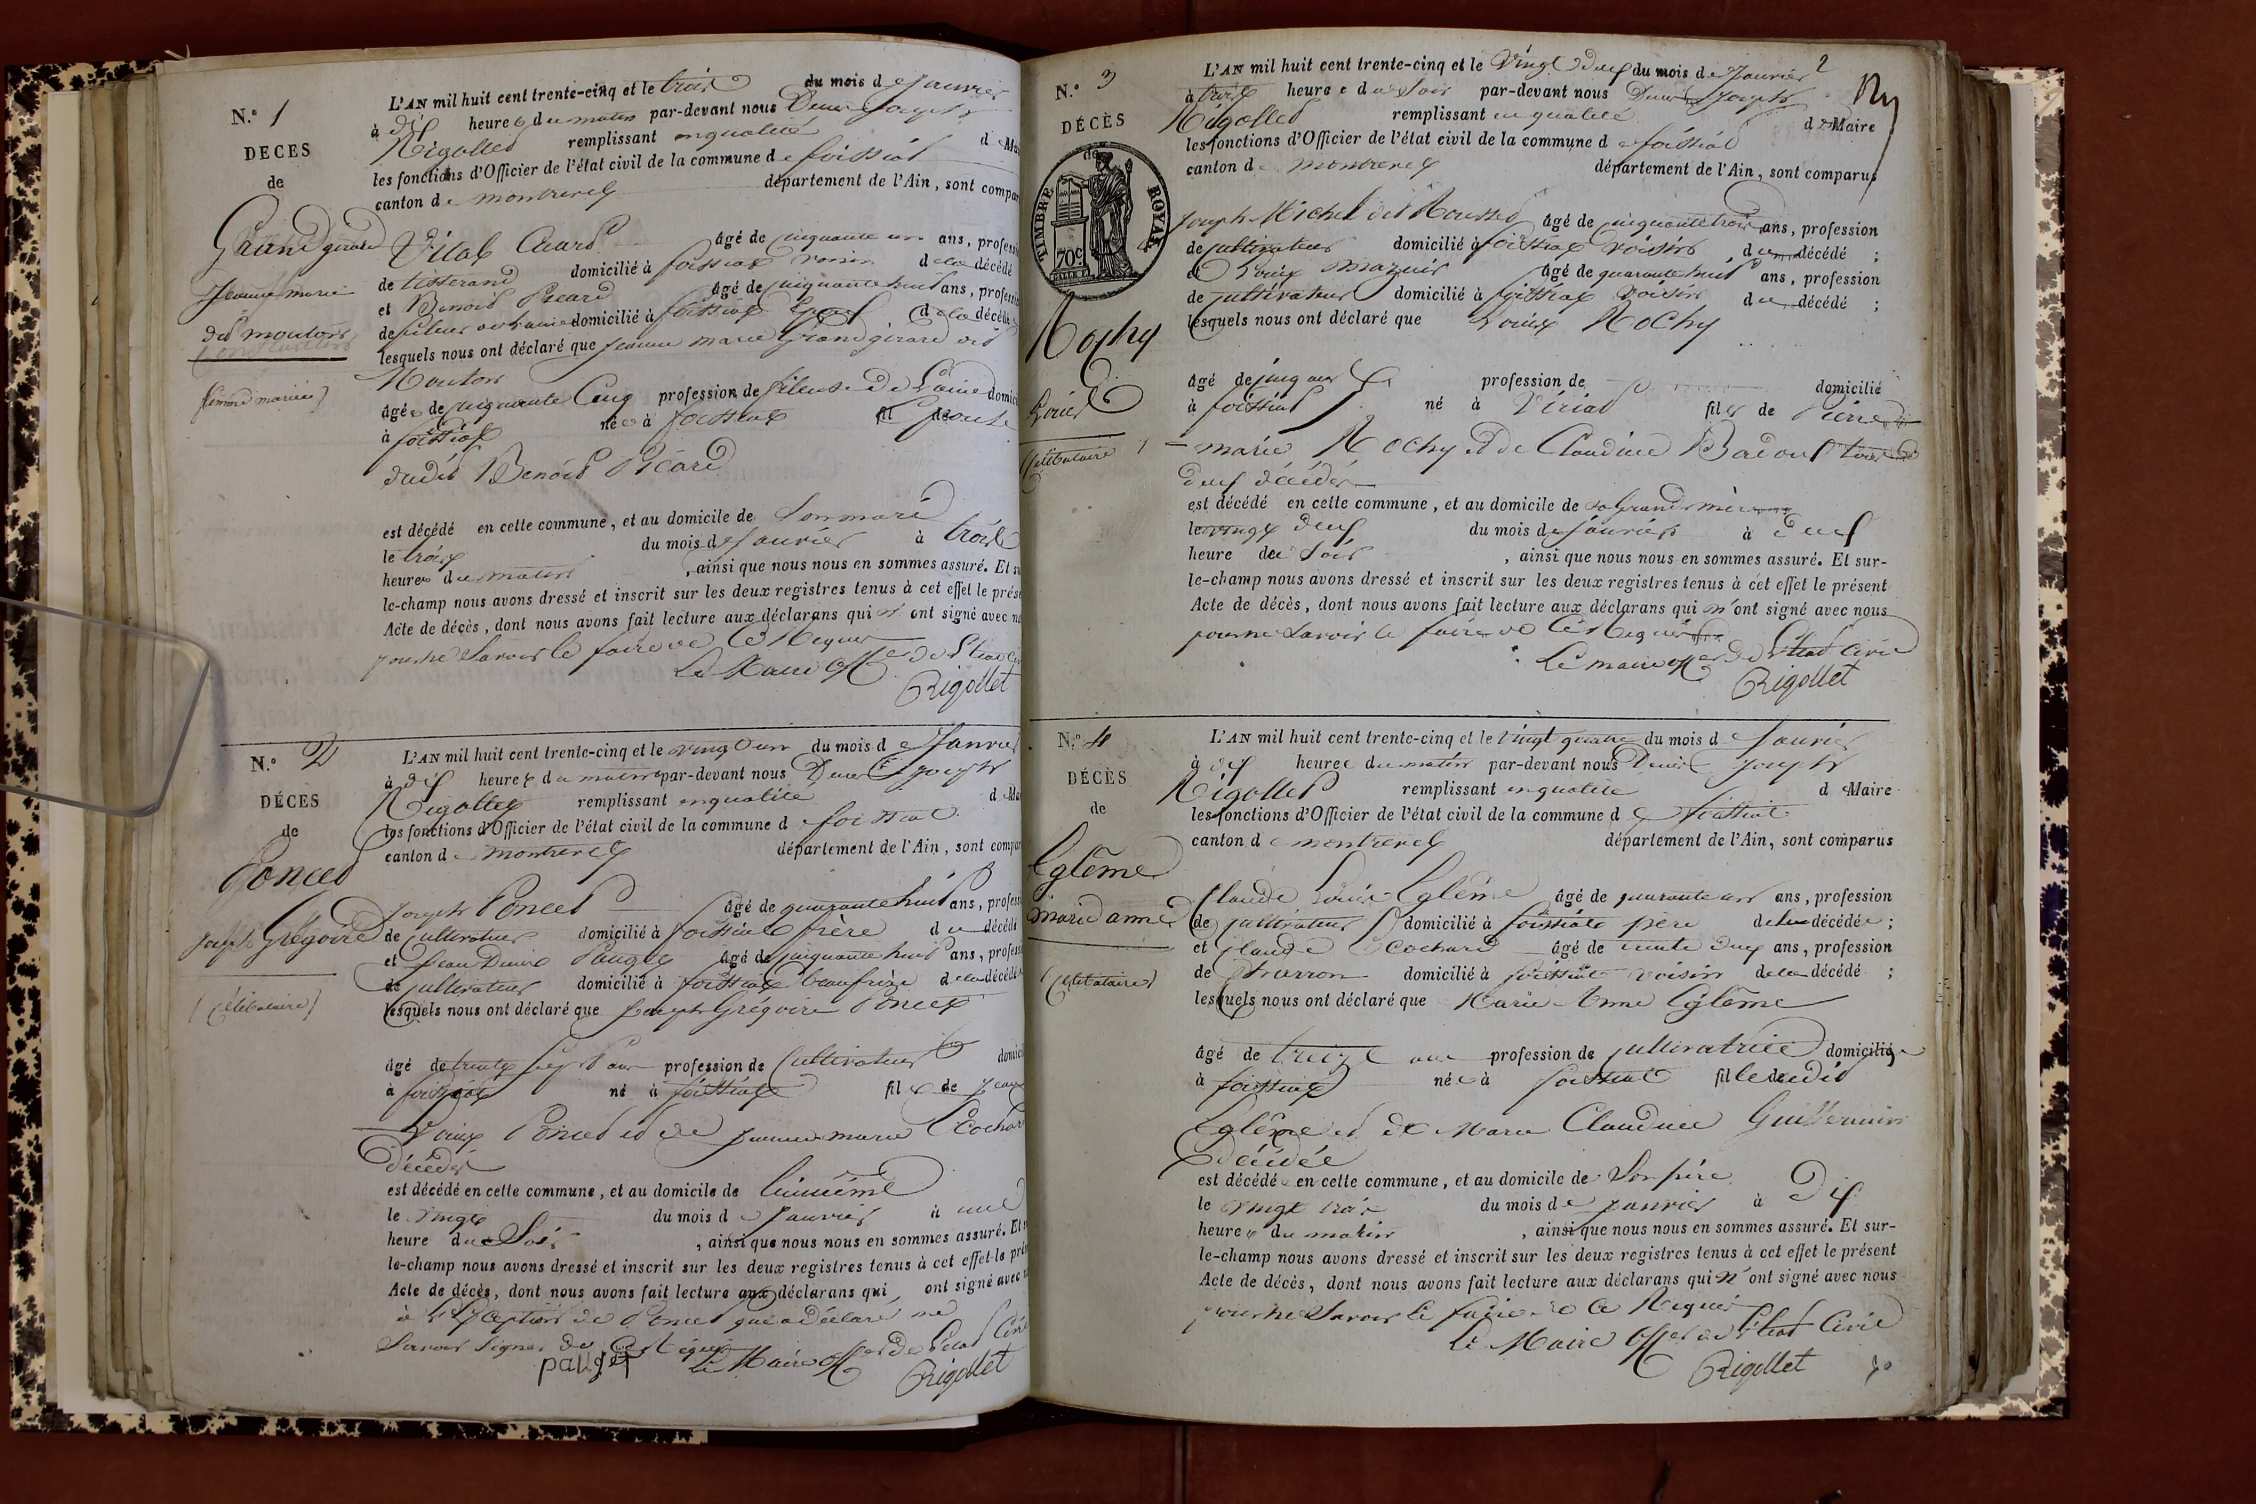 N.° 1
DÉCES
de
Grand girard
Jeanne marie
dit moutons
(femme mariée)
L'AN mil huit cent trente-cinq et le trois du mois de Janvier
à dix heures du matin par-devant nous Denis Joseph
Rigollet remplissant en qualité de
les fonctions d'Officier de l'état civil de la commune de foissiat
canton de montrevel département de l'Ain, sont
Vital Cuard âgé de cinquante un ans,
de tisserand domicilié à foissiat voisin de la décédé
et Benoit Picard âgé de cinquante huit ans,
de domicilié à foissiat Epoux de la décédé
lesquels nous ont déclaré que jeanne marie Grand girard dit
Mouton
âgée de cinquante Cinq profession de fileuse de Laine
à foissiat née à foissiat Epouse
dudit Benoit Picard
est décédé en cette commune, et au domicile de Son mari
le trois du mois de Janvier à trois
heures du matin, ainsi que nous nous en sommes assuré. Et
le-champ nous avons dressé et inscrit sur les deux registres tenus à cet effet le
Acte de décès, dont nous avons fait lecture aux déclarans qui n'ont signé avec
pour ne Savoir le faire de ce Requis
Le Maire off er de l'Etat
Rigollet
N.° 2
DÉCES
de
Poncet
joseph Grégoire
(célibataire)
L'AN mil huit cent trente-cinq et le vingt un du mois de Janvier
à dix heures du matin par-devant nous Denis Joseph
Rigollet remplissant en qualité de
les fonctions d'Officier de l'état civil de la commune de foissiat
canton de montrevel département de l'Ain, sont
Joseph Poncet âgé de quarante huit ans,
de cultivateur domicilié à foissiat frère du décédé
et Jean Denis Pauget âgé de cinquante huit ans,
de cultivateur domicilié à foissiat beaufrère de la décédé
lesquels nous ont déclaré que Joseph Grégoire Poncet
âgé de trente Sept ans profession de Cultivateur
à foissiat né à foissiat fils de Jean
Louis Poncet et de jeanne marie Cochard
décédés
est décédé en cette commune, et au domicile de lui même
le vingt du mois de Janvier à une
heure du Soir, ainsi que nous nous en sommes assuré. Et
le-champ nous avons dressé et inscrit sur les deux registres tenus à cet effet le
Acte de décès, dont nous avons fait lecture aux déclarans qui ont signé avec
à l'Exception de Poncet qui a Déclaré ne
Savoir Signer de ce Requis
pauget Le Maire off er de l'Etat Civil
Rigollet
2
N.° 3
DÉCÈS
de
TIMBRE ROYAL
70 c.
Rochy
Louis
(célibataire)
L'AN mil huit cent trente-cinq et le Vingt deux du mois de Janvier
à trois heures du Soir par-devant nous Denis Joseph
Rigollet remplissant en qualité de Maire
les fonctions d'Officier de l'état civil de la commune de foissiat
canton de montrevel département de l'Ain, sont comparus
Joseph Michel dit Rousset âgé de cinquante trois ans, profession
de cultivateur domicilié à foissiat voisin du décédé ;
et Louis Mazuir âgé de quarante huit ans, profession
de cultivateur domicilié à foissiat voisin du décédé ;
lesquels nous ont déclaré que Louis Rochy
âgé de cinq ans profession de domicilié
à foissiat né à Viriat fils de Pierre
marie Rochy et de Claudine tous
deux décédés
est décédé en cette commune, et au domicile de sa Grand mère
le vingt deux du mois de Janvier à deux
heure du Soir, ainsi que nous nous en sommes assuré. Et sur-
le-champ nous avons dressé et inscrit sur les deux registres tenus à cet effet le présent
Acte de décès, dont nous avons fait lecture aux déclarans qui n'ont signé avec nous
pour ne Savoir le faire de ce Requis
Le maire off er de l'Etat Civil
Rigollet
N.° 4
DÉCÈS
de
Eglême
marie anne
(célibataire)
L'AN mil huit cent trente-cinq et le Vingt quatre du mois de Janvier
à dix heures du matin par-devant nous Denis Joseph
Rigollet remplissant en qualité de Maire
les fonctions d'Officier de l'état civil de la commune de foissiat
canton de montrevel département de l'Ain, sont comparus
Claude Louis Eglême âgé de quarante un ans, profession
de cultivateur domicilié à foissiat père de la décédée ;
et Claude Cochard âgé de trente deux ans, profession
de Charron domicilié à foissiat voisin de la décédé ;
lesquels nous ont déclaré que Marie Anne Eglême
âgé de treize ans profession de cultivatrice domiciliée
à foissiat née à foissiat fille dudit
Eglême et de Marie Claudine Guillermin
décédée
est décédé en cette commune, et au domicile de Son père
le vingt trois du mois de janvier à Dix
heures du matin, ainsi que nous nous en sommes assuré. Et sur-
le-champ nous avons dressé et inscrit sur les deux registres tenus à cet effet le présent
Acte de décès, dont nous avons fait lecture aux déclarans qui n'ont signé avec nous
pour ne Savoir le faire de ce Requis
Le Maire off er de l'Etat Civil
Rigollet